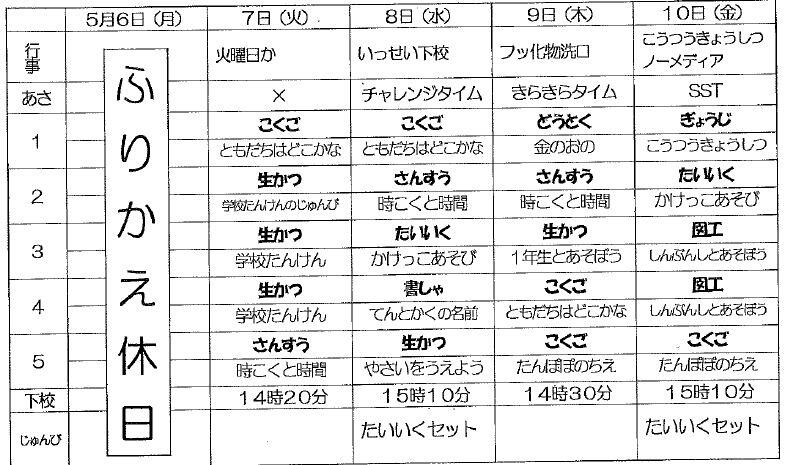 5月6日（月） 7日（火） 8日（水） 9日（木） 10日（金）
行事 火曜日か いっせい下校 フッ化物洗口 こうつうきょうしつ
ノーメディア
あさ × チャレンジタイム きらきらタイム SST
ふりかえ休日
1 こくご こくご どうとく ぎょうじ
ともだちはどこかな ともだちはどこかな 金のおの こうつうきょうしつ
2 生かつ さんすう さんすう たいいく
学校たんけんのじゅんび 時こくと時間 時こくと時間 かけっこあそび
3 生かつ たいいく 生かつ 図工
学校たんけん かけっこあそび 1年生とあそぼう しんぶんしとあそぼう
4 生かつ 書しゃ こくご 図工
学校たんけん てんとかくの名前 ともだちはどこかな しんぶんしとあそぼう
5 さんすう 生かつ こくご こくご
時こくと時間 やさいをうえよう たんぽぽのちえ たんぽぽのちえ
下校 14時20分 15時10分 14時30分 15時10分
じゅんび たいいくセット たいいくセット